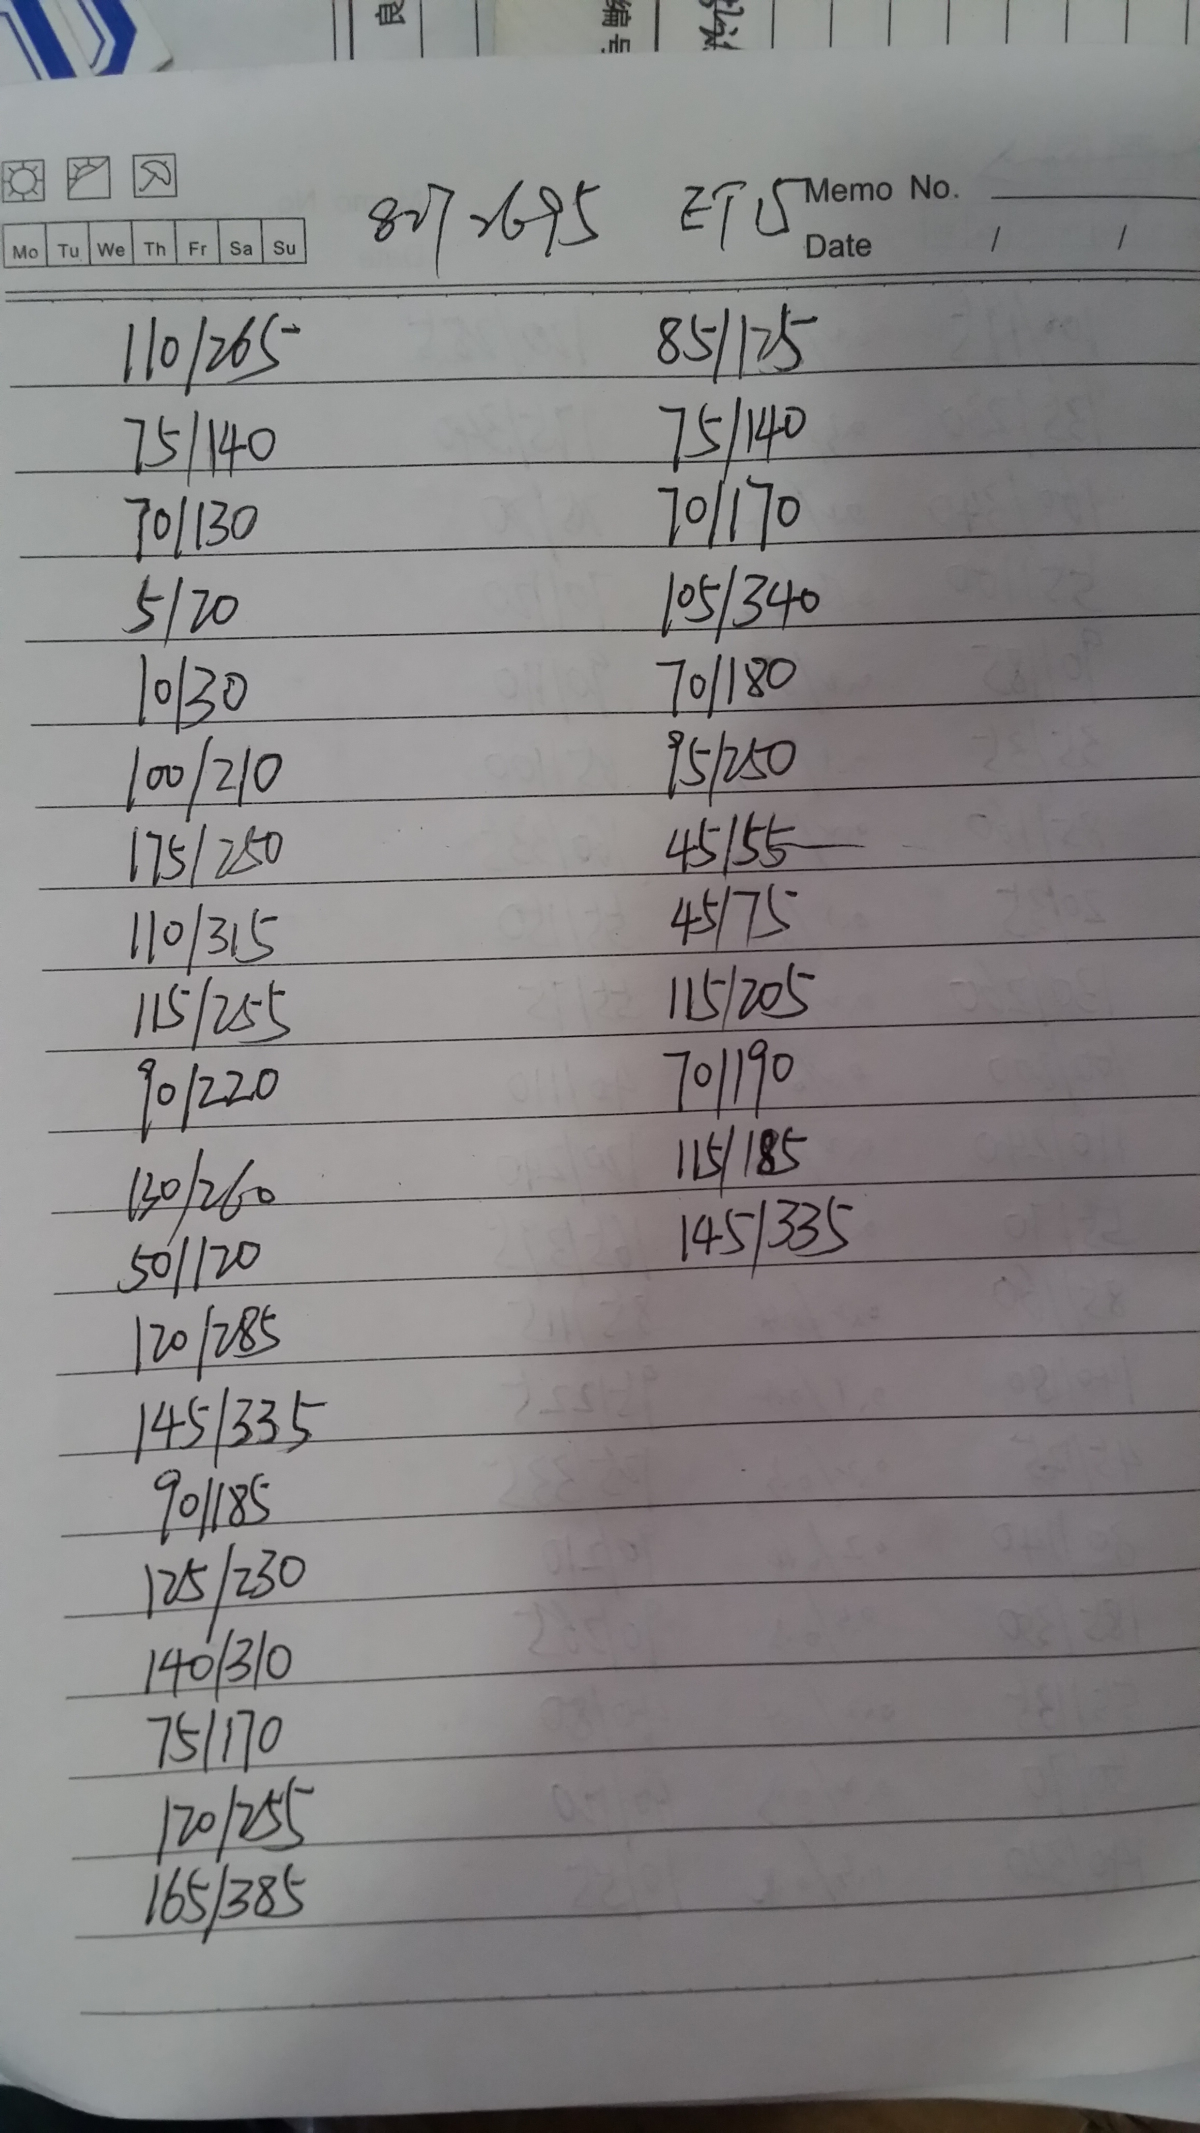 良
编号
827 2695 ET15
Memo No.
Mo Tu We Th Fr Sa Su
Date / /
110/265 85/125
75/140 75/140
70/130 70/170
5/20 105/340
10/30 70/180
100/210 95/250
175/250 45/55
110/315 45/75
115/255 115/205
90/220 70/190
130/260 115/185
50/120 145/335
120/285
145/335
90/185
125/230
140/310
75/170
120/255
165/385